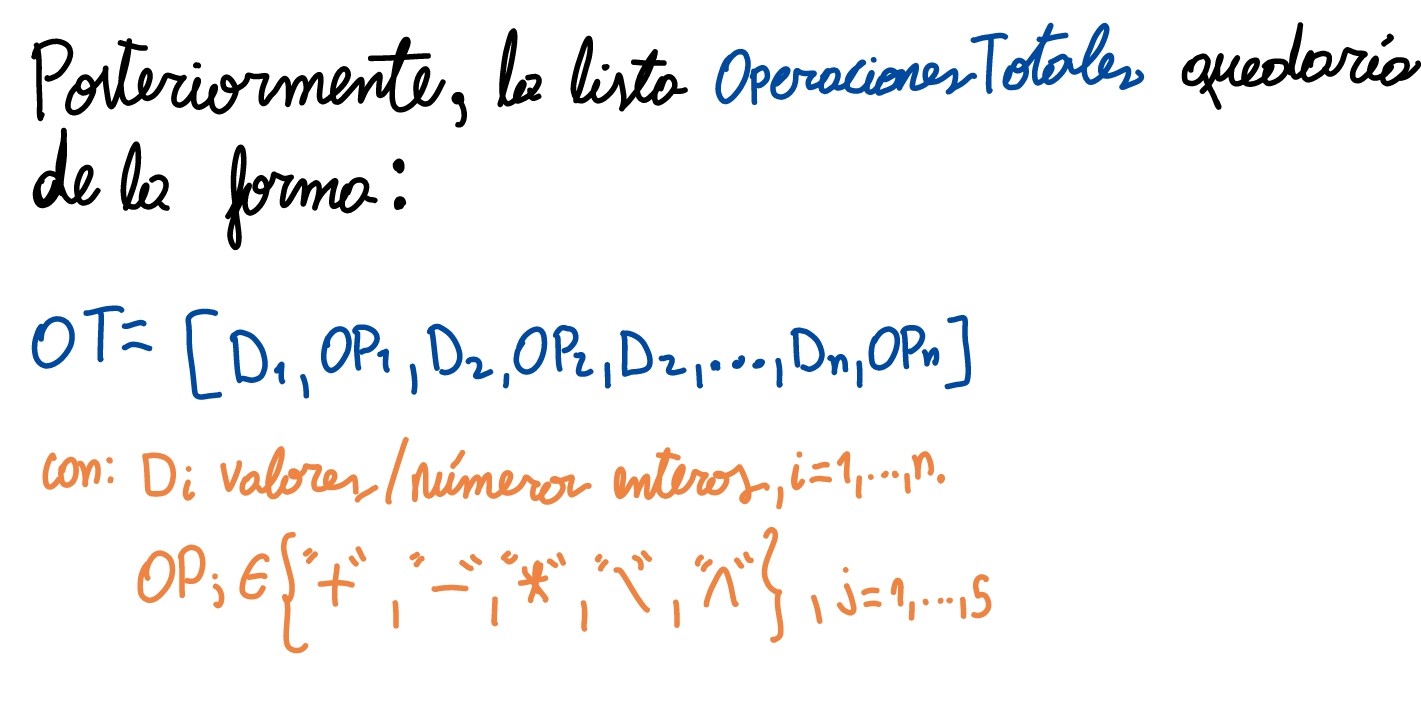 Posteriormente, la lista OperacionesTotales quedaría
de la forma:
OT= [D₁, OP₁, D₂, OP₂, D₂, ..., Dₙ, OPₙ]
con: Di valores/números enteros, i=1,...,n.
OPj ∈ {"+", "-", "*", "\", "^"}, j=1,...,5